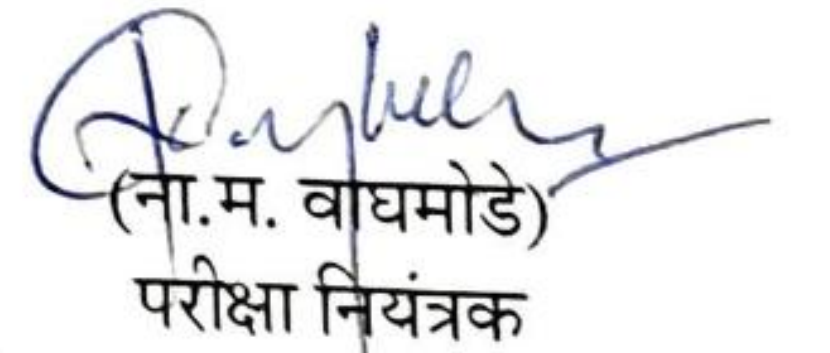 (ना.म. वाघमोडे)
परीक्षा नियंत्रक